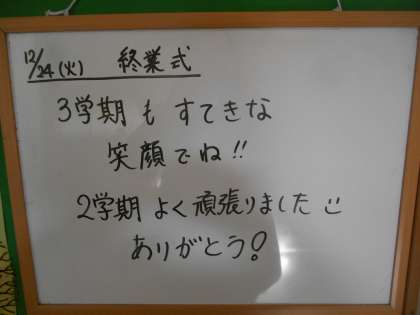 12/24(火) 終業式
3学期も すてきな
笑顔でね!!
2学期 よく頑張りました
ありがとう!